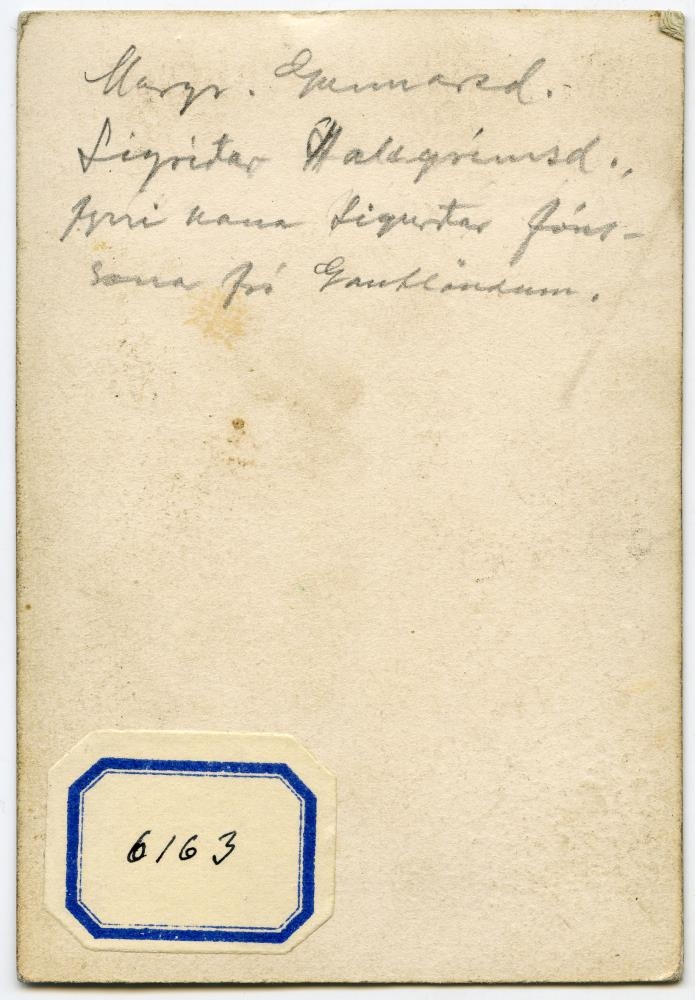 Margr. Gunnarsd.
Sigríðar Hallgrímsd.,
fyrri kona Sigurðar Jóns-
sonar frá Gautlöndum.
6163